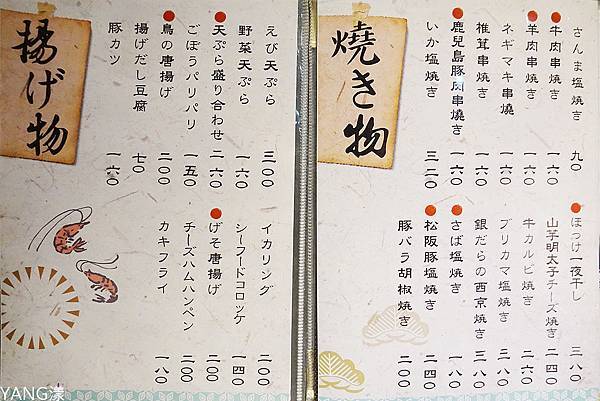 燒き物
さんま塩焼き 九〇
牛肉串焼き 一六〇
羊肉串焼き 一六〇
ネギマキ串燒 一六〇
椎茸串焼き 一六〇
鹿兒島豚肉串燒き 一六〇
いか塩焼き 三二〇
ほっけ一夜干し 三八〇
山芋明太子チーズ焼き 二四〇
牛カルビ焼き 二六〇
ブリカマ塩焼き 三八〇
銀だらの西京焼き 三八〇
さば塩焼き 一八〇
松阪豚塩焼き 二〇〇
豚バラ胡椒焼き 二〇〇
揚げ物
えび天ぷら 三〇〇
野菜天ぷら 一六〇
天ぷら盛り合わせ 二六〇
ごぼうパリパリ 一五〇
鳥の唐揚げ 二〇〇
揚げだし豆腐 七〇
豚カツ 一六〇
イカリング 二〇〇
シーフードコロッケ 一四〇
げそ唐揚げ 二〇〇
チーズハムハンペン 二〇〇
カキフライ 一八〇
YANG漾